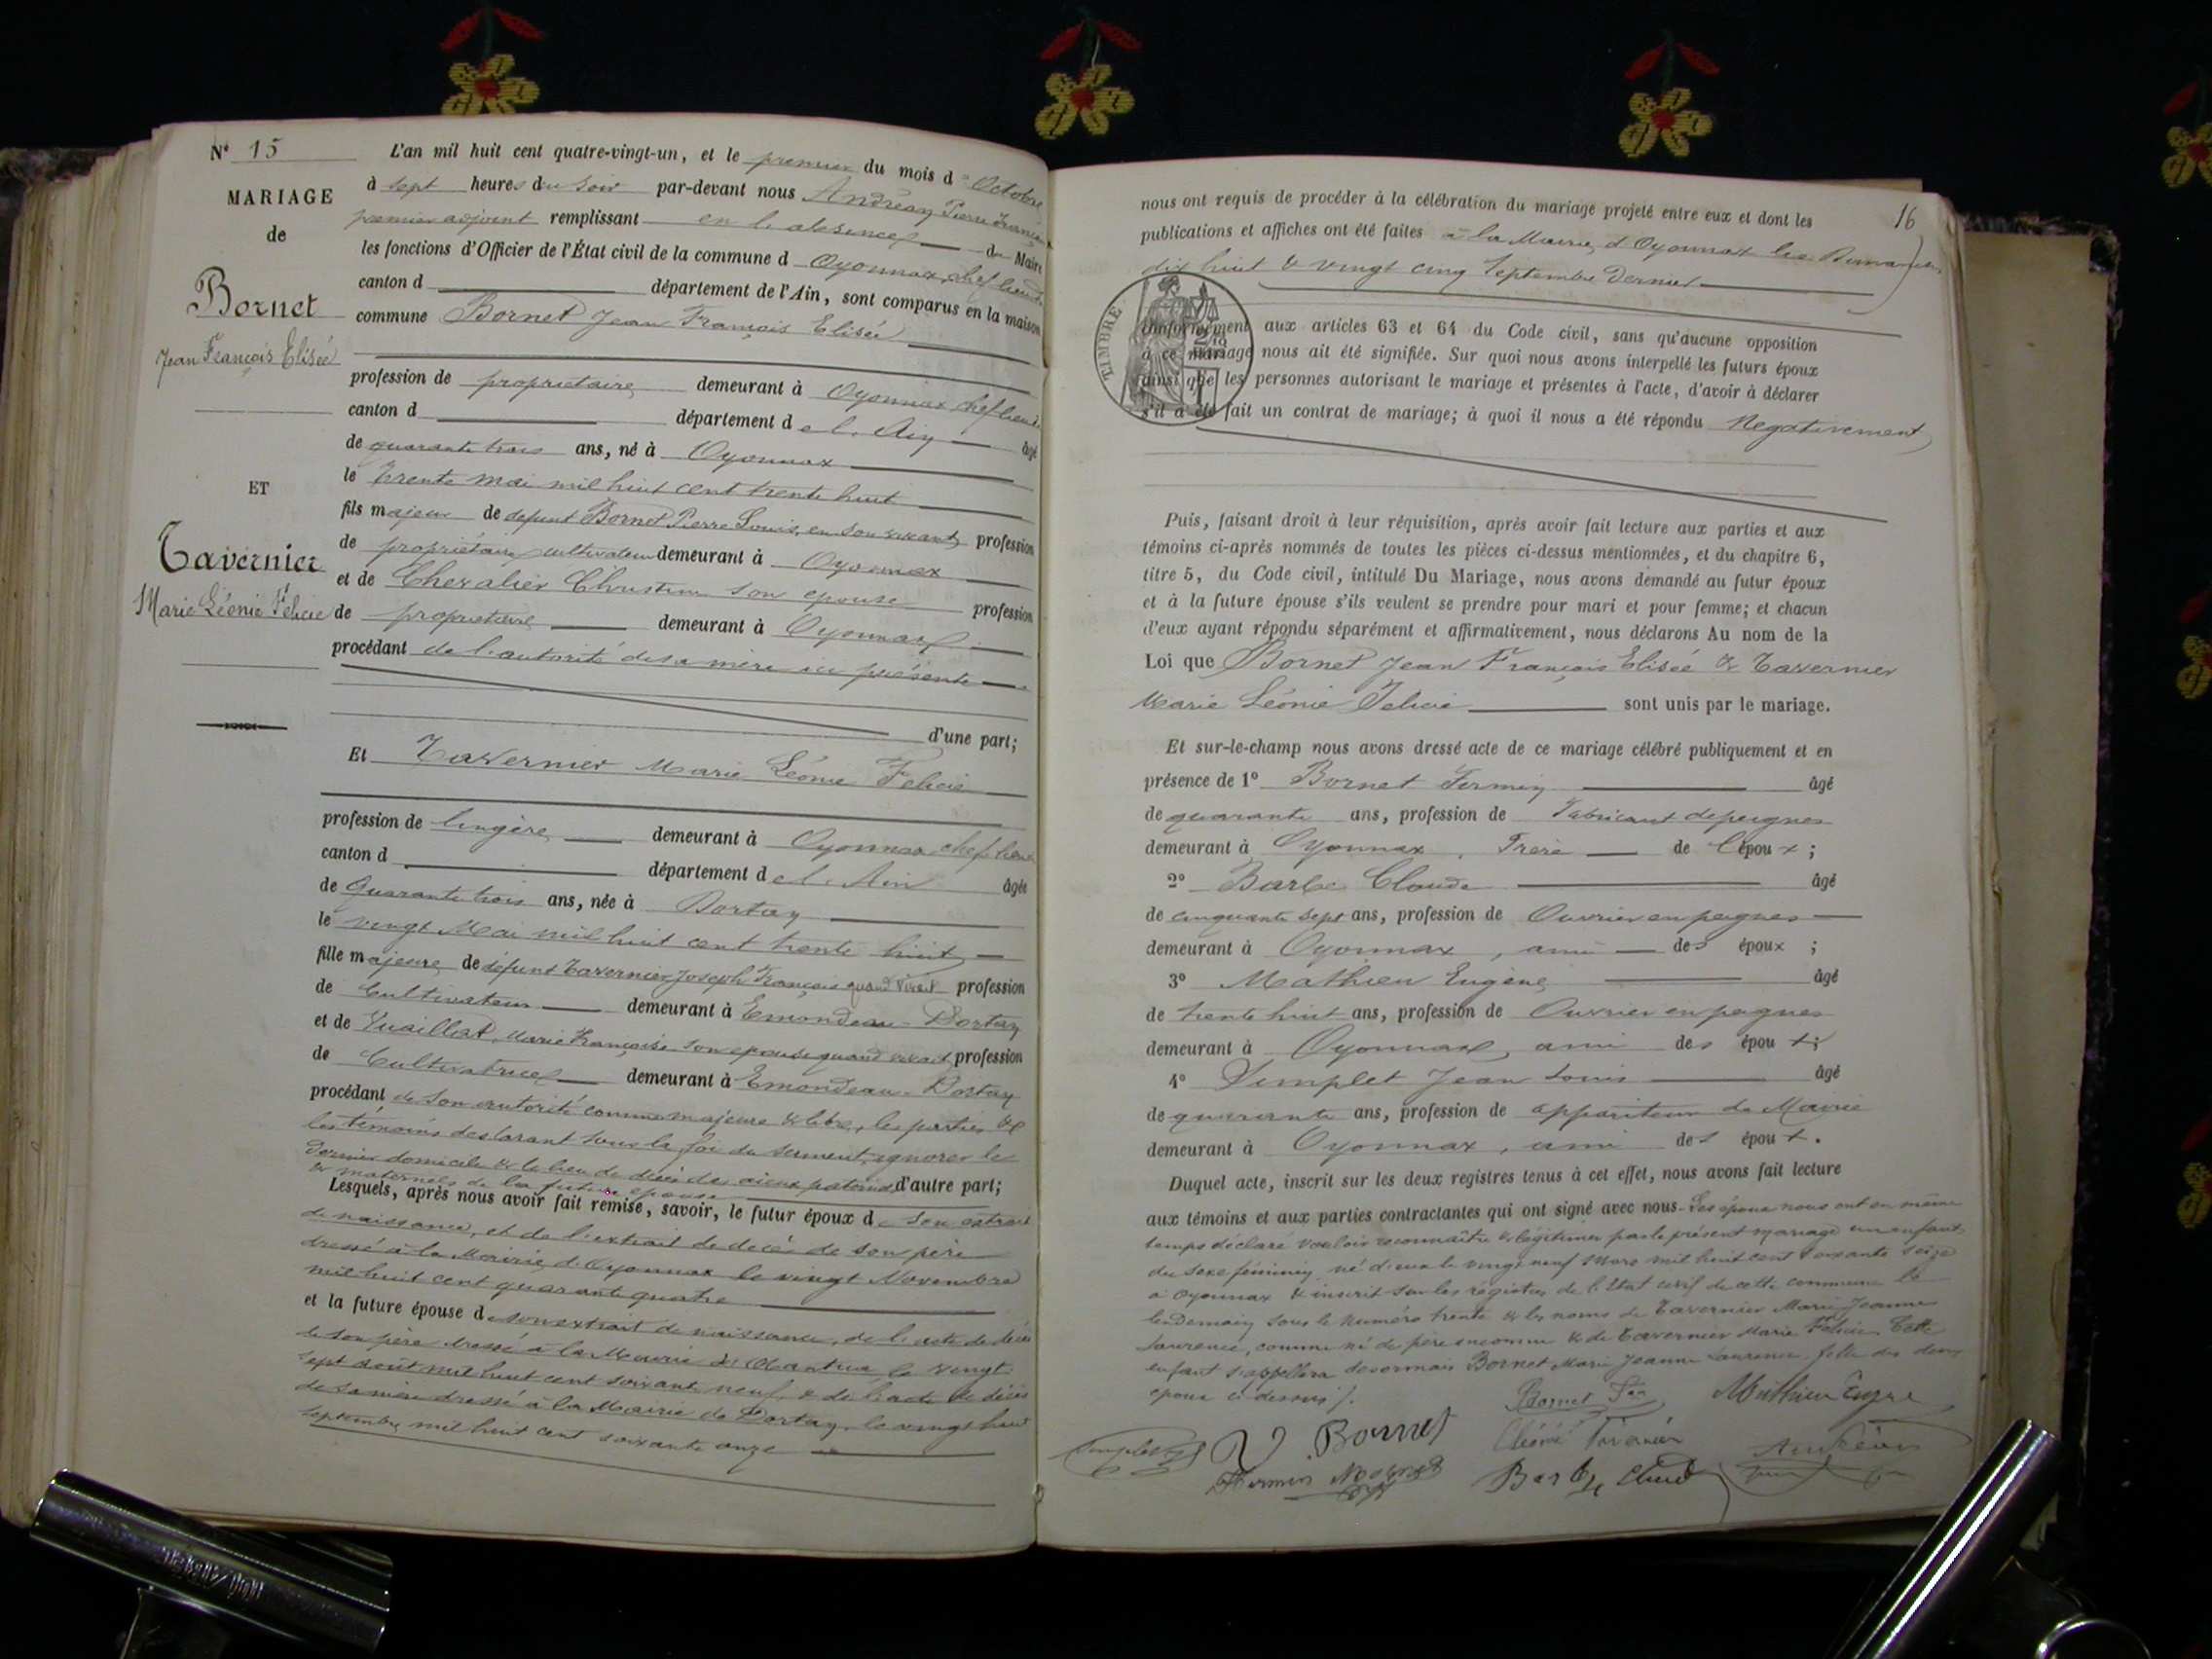 N° 15
MARIAGE
de
Bornet
Jean François Elisée
ET
Tavernier
Marie Léonie Félicie
L'an mil huit cent quatre-vingt-un, et le premier du mois d'Octobre
à sept heures du soir par-devant nous Andréan Pierre François
premier adjoint remplissant en l'absence du Maire
les fonctions d'Officier de l'État civil de la commune d Oyonnax, chef lieu de
canton d département de l'Ain, sont comparus en la maison
commune Bornet Jean François Elisée
profession de propriétaire demeurant à Oyonnax chef lieu de
canton d département de l'Ain âgé
de quarante trois ans, né à Oyonnax
le trente mai mil huit cent trente huit
fils majeur de defunt Bornet Pierre Louis, en son vivant, profession
de propriétaire cultivateur demeurant à Oyonnax
et de Chevalier Christine son epouse profession
de propriétaire demeurant à Oyonnax
procédant de l'autorité de sa mère ici présente
d'une part;
Et Tavernier Marie Léonie Felicie
profession de lingère demeurant à Oyonnax chef lieu
canton d département de l'Ain âgée
de Quarante trois ans, née à Dortan
le vingt Mai mil huit cent trente huit
fille majeure de défunt Tavernier Joseph François quand vivait profession
de Cultivateur demeurant à Emondeau - Dortan
et de Vuaillat Marie Françoise son epouse quand vivait, profession
de Cultivatrice demeurant à Emondeau - Dortan
procédant de son autorité comme majeure & libre, les parties &
les témoins déclarant sous la foi du serment, ignorer le
dernier domicile & le lieu de décès des aieux paternels d'autre part;
& maternels de la future epouse
Lesquels, après nous avoir fait remise, savoir, le futur époux de son extrait
de naissance, et de l'extrait de décès de son père
dressé à la Mairie d'Oyonnax le vingt Novembre
mil huit cent quarante quatre
et la future épouse de son extrait de naissance, de l'acte de décès
de son père dressé à la Mairie de Nantua le vingt
sept août mil huit cent soixante neuf & de l'acte de décès
de sa mère dressé à la Mairie de Dortan, le vingt huit
septembre mil huit cent soixante onze
16
nous ont requis de procéder à la célébration du mariage projeté entre eux et dont les
publications et affiches ont été faites à la Mairie d'Oyonnax les Dimanches
dix huit & vingt cinq Septembre dernier
TIMBRE
conformément aux articles 63 et 64 du Code civil, sans qu'aucune opposition
à ce mariage nous ait été signifiée. Sur quoi nous avons interpellé les futurs époux
ainsi que les personnes autorisant le mariage et présentes à l'acte, d'avoir à déclarer
s'il a été fait un contrat de mariage; à quoi il nous a été répondu Negativement
Puis, faisant droit à leur réquisition, après avoir fait lecture aux parties et aux
témoins ci-après nommés de toutes les pièces ci-dessus mentionnées, et du chapitre 6,
titre 5, du Code civil, intitulé Du Mariage, nous avons demandé au futur époux
et à la future épouse s'ils veulent se prendre pour mari et pour femme; et chacun
d'eux ayant répondu séparément et affirmativement, nous déclarons Au nom de la
Loi que Bornet Jean François Elisée & Tavernier
Marie Léonie Felicie sont unis par le mariage.
Et sur-le-champ nous avons dressé acte de ce mariage célébré publiquement et en
présence de 1° Bornet Firmin âgé
de quarante ans, profession de Fabricant de peignes
demeurant à Oyonnax, Frère de l'époux;
2° Barbe Claude âgé
de cinquante sept ans, profession de Ouvrier en peignes
demeurant à Oyonnax, ami des époux;
3° Mathieu Eugène âgé
de trente huit ans, profession de Ouvrier en peignes
demeurant à Oyonnax, ami des époux;
4° Simplet Jean Louis âgé
de quarante ans, profession de appariteur de Mairie
demeurant à Oyonnax, ami des époux.
Duquel acte, inscrit sur les deux registres tenus à cet effet, nous avons fait lecture
aux témoins et aux parties contractantes qui ont signé avec nous. Les époux nous ont en même
temps déclaré vouloir reconnaître & légitimer par le présent mariage un enfant
du sexe féminin né d'eux le vingt neuf Mars mil huit cent soixante seize
à Oyonnax & inscrit sur les registres de l'Etat civil de cette commune le
lendemain sous le numéro trente & les noms de Tavernier Marie Jeanne
Laurence, comme né de père inconnu & de Tavernier Marie Félicie. Cette
enfant s'appellera desormais Bornet Marie Jeanne Laurence, fille des deux
epoux ci dessus.
Bornet Mathieu Eugène
Simplet Bornet Léonie Tavernier
Firmin Bornet Barbe Claud Andréan